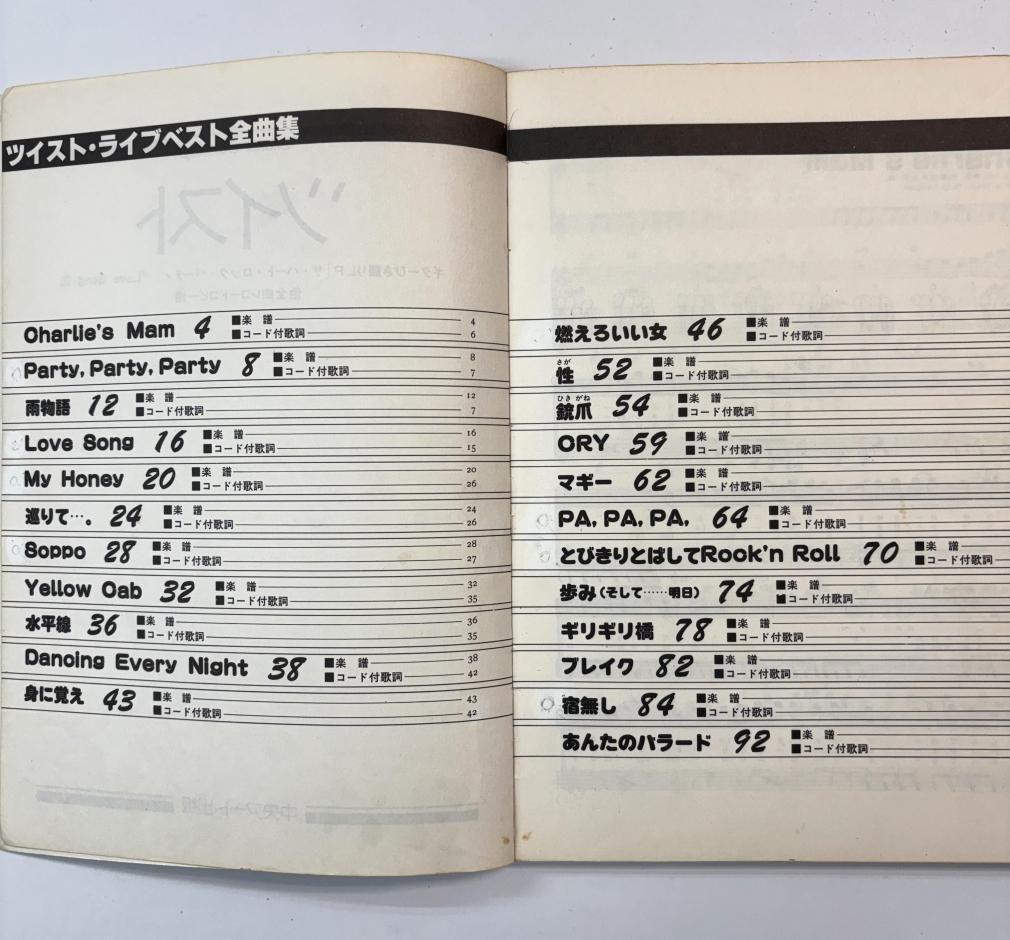 ツイスト・ライブベスト全曲集
Charlie's Mam 4 ■楽 譜 4
■コード付歌詞 6
Party, Party, Party 8 ■楽 譜 8
■コード付歌詞 7
雨物語 12 ■楽 譜 12
■コード付歌詞 7
Love Song 16 ■楽 譜 16
■コード付歌詞 15
My Honey 20 ■楽 譜 20
■コード付歌詞 26
巡りて…。 24 ■楽 譜 24
■コード付歌詞 26
Soppo 28 ■楽 譜 28
■コード付歌詞 27
Yellow Cab 32 ■楽 譜 32
■コード付歌詞 35
水平線 36 ■楽 譜 36
■コード付歌詞 35
Dancing Every Night 38 ■楽 譜 38
■コード付歌詞 42
身に覚え 43 ■楽 譜 43
■コード付歌詞 42
燃えろいい女 46 ■楽 譜
■コード付歌詞
さが
性 52 ■楽 譜
■コード付歌詞
ひき がね
銃爪 54 ■楽 譜
■コード付歌詞
ORY 59 ■楽 譜
■コード付歌詞
マギー 62 ■楽 譜
■コード付歌詞
PA, PA, PA, 64 ■楽 譜
■コード付歌詞
とびきりとばしてRock'n Roll 70 ■楽 譜
■コード付歌詞
歩み(そして……明日) 74 ■楽 譜
■コード付歌詞
ギリギリ橋 78 ■楽 譜
■コード付歌詞
ブレイク 82 ■楽 譜
■コード付歌詞
宿無し 84 ■楽 譜
■コード付歌詞
あんたのバラード 92 ■楽 譜
■コード付歌詞